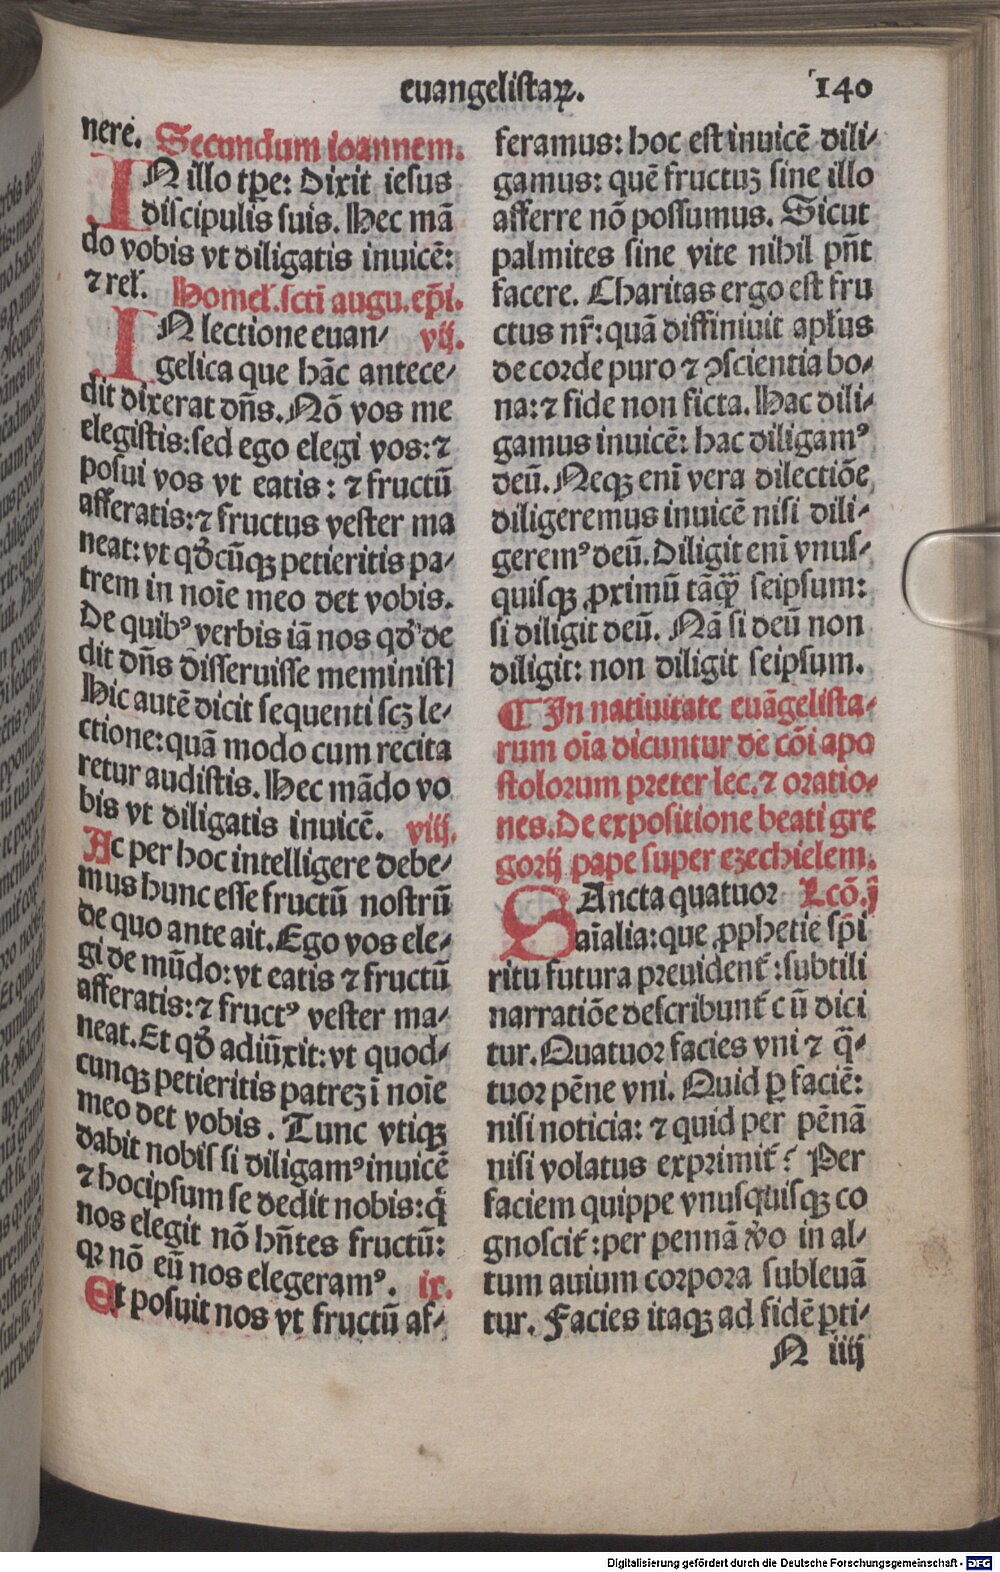 euangelistaꝝ.
140
nerē.
Secundum ioannem.
IN illo tꝑe: Dixit iesus
discipulis suis. Hec mā
do vobis vt diligatis inuicē:
⁊ rel̕.
Homel̕. scti augu. ep̄i.
IN lectione euan⸗
vij.
gelica que hāc antece⸗
dit dixerat dn̄s. Nō vos me
elegistis: sed ego elegi vos: ⁊
posui vos vt eatis: ⁊ fructū
afferatis: ⁊ fructus vester ma
neat: vt qd̄cūqꝫ petieritis pa⸗
trem in noīe meo det vobis.
De quibꝰ verbis iā nos qd̄ de
dit dn̄s disseruisse meministꝭ
Hic autē dicit sequenti scꝫ le⸗
ctione: quā modo cum recita
retur audistis. Hec mādo vo
bis vt diligatis inuicē.
viij.
Ac per hoc intelligere debe⸗
mus hunc esse fructū nostrū
de quo ante ait. Ego vos ele⸗
gi de mūdo: vt eatis ⁊ fructū
afferatis: ⁊ fructꝰ vester ma⸗
neat. Et qd̄ adiūxit: vt quod⸗
cunqꝫ petieritis patreꝫ ī noīe
meo det vobis. Tunc vtiqꝫ
dabit nobis si diligamꝰ inuicē
⁊ hocipsum se dedit nobis: q̄
nos elegit nō hn̄tes fructū:
qꝛ nō eū nos elegeramꝰ.
ix.
Et posuit nos vt fructū af⸗
feramus: hoc est inuicē dili⸗
gamus: quē fructuꝫ sine illo
afferre nō possumus. Sicut
palmites sine vite nihil pn̄t
facere. Charitas ergo est fru
ctus nr̄: quā diffiniuit apl̕us
de corde puro ⁊ ꝯscientia bo⸗
na: ⁊ fide non ficta. Hac dili⸗
gamus inuicē: hac diligamꝰ
deū. Neqꝫ enī vera dilectiōe
diligeremus inuicē nisi dili⸗
geremꝰ deū. Diligit enī vnus⸗
quisqꝫ ꝓximū tāqꝙ seipsum:
si diligit deū. Nā si deū non
diligit: non diligit seipsum.
¶ In natiuitate euāgelista⸗
rum oīa dicuntur de cōi apo
stolorum preter lec. ⁊ oratio⸗
nes. De expositione beati gre
gorij pape super ezechielem.
SAncta quatuor
Lcō. j
aīalia: que ꝓphetie sp̄i
ritu futura preuident̕: subtili
narratiōe describunt̕ cū dici
tur. Quatuor facies vni ⁊ q̄⸗
tuor pēne vni. Quid ꝑ faciē:
nisi noticia: ⁊ quid per pēnā
nisi volatus exprimit̕? Per
faciem quippe vnusquisqꝫ co
gnoscit̕: per pennā v̕o in al⸗
tum auium corpora subleuā
tur. Facies itaqꝫ ad fidē ꝑti⸗
N iiij
Digitalisierung gefördert durch die Deutsche Forschungsgemeinschaft - DFG